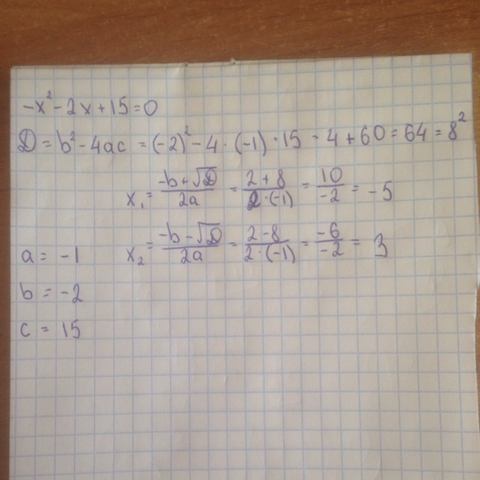 -x² - 2x + 15 = 0
D = b² - 4ac = (-2)² - 4 · (-1) · 15 = 4 + 60 = 64 = 8²
x₁ = (-b + √D) / 2a = (2 + 8) / (2 · (-1)) = 10 / -2 = -5
x₂ = (-b - √D) / 2a = (2 - 8) / (2 · (-1)) = -6 / -2 = 3
a = -1
b = -2
c = 15